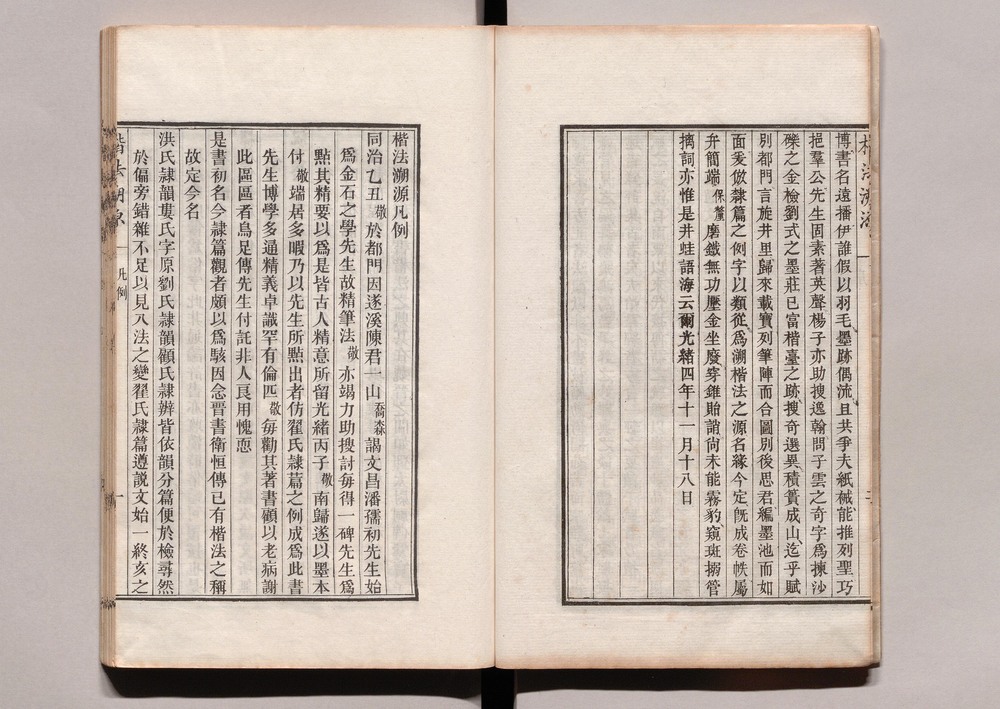 楷法溯源
博書名遠播伊誰假以羽毛墨跡偶流且共爭夫紙槭能推列聖巧
挹羣公先生固素著英聲楊子亦助搜逸翰問子雲之奇字爲揀沙
礫之金檢劉式之墨莊已富楷臺之跡搜奇選異積簣成山迄乎賦
別都門言旋井里歸來載寶列筆陣而合圖別後思君編墨池而如
面爰倣隸篇之例字以類從爲溯楷法之源名緣今定旣成卷帙屬
弁簡端保釐磨鐵無功壓金坐廢穿錐貽誚尚未能霧豹窺斑搦管
摛詞亦惟是井蛙語海云爾光緒四年十一月十八日
楷法溯源凡例
同治乙丑敬於都門因遂溪陳君一山喬森謁文昌潘孺初先生始
爲金石之學先生故精筆法敬亦竭力助搜討每得一碑先生爲
點其精要以爲是皆古人精意所留光緒丙子敬南歸遂以墨本
付敬端居多暇乃以先生所點出者仿翟氏隸篇之例成爲此書
先生博學多通精義卓識罕有倫匹敬每勸其著書顧以老病謝
此區區者烏足傳先生付託非人良用愧恧
是書初名今隸篇觀者頗以爲駭因念晉書衛恒傳已有楷法之稱
故定今名
洪氏隸韻婁氏字原劉氏隸韻顧氏隸辨皆依韻分篇便於檢尋然
於偏旁錯雜不足以見八法之變翟氏隸篇遵説文始一終亥之
楷法溯源 凡例 一